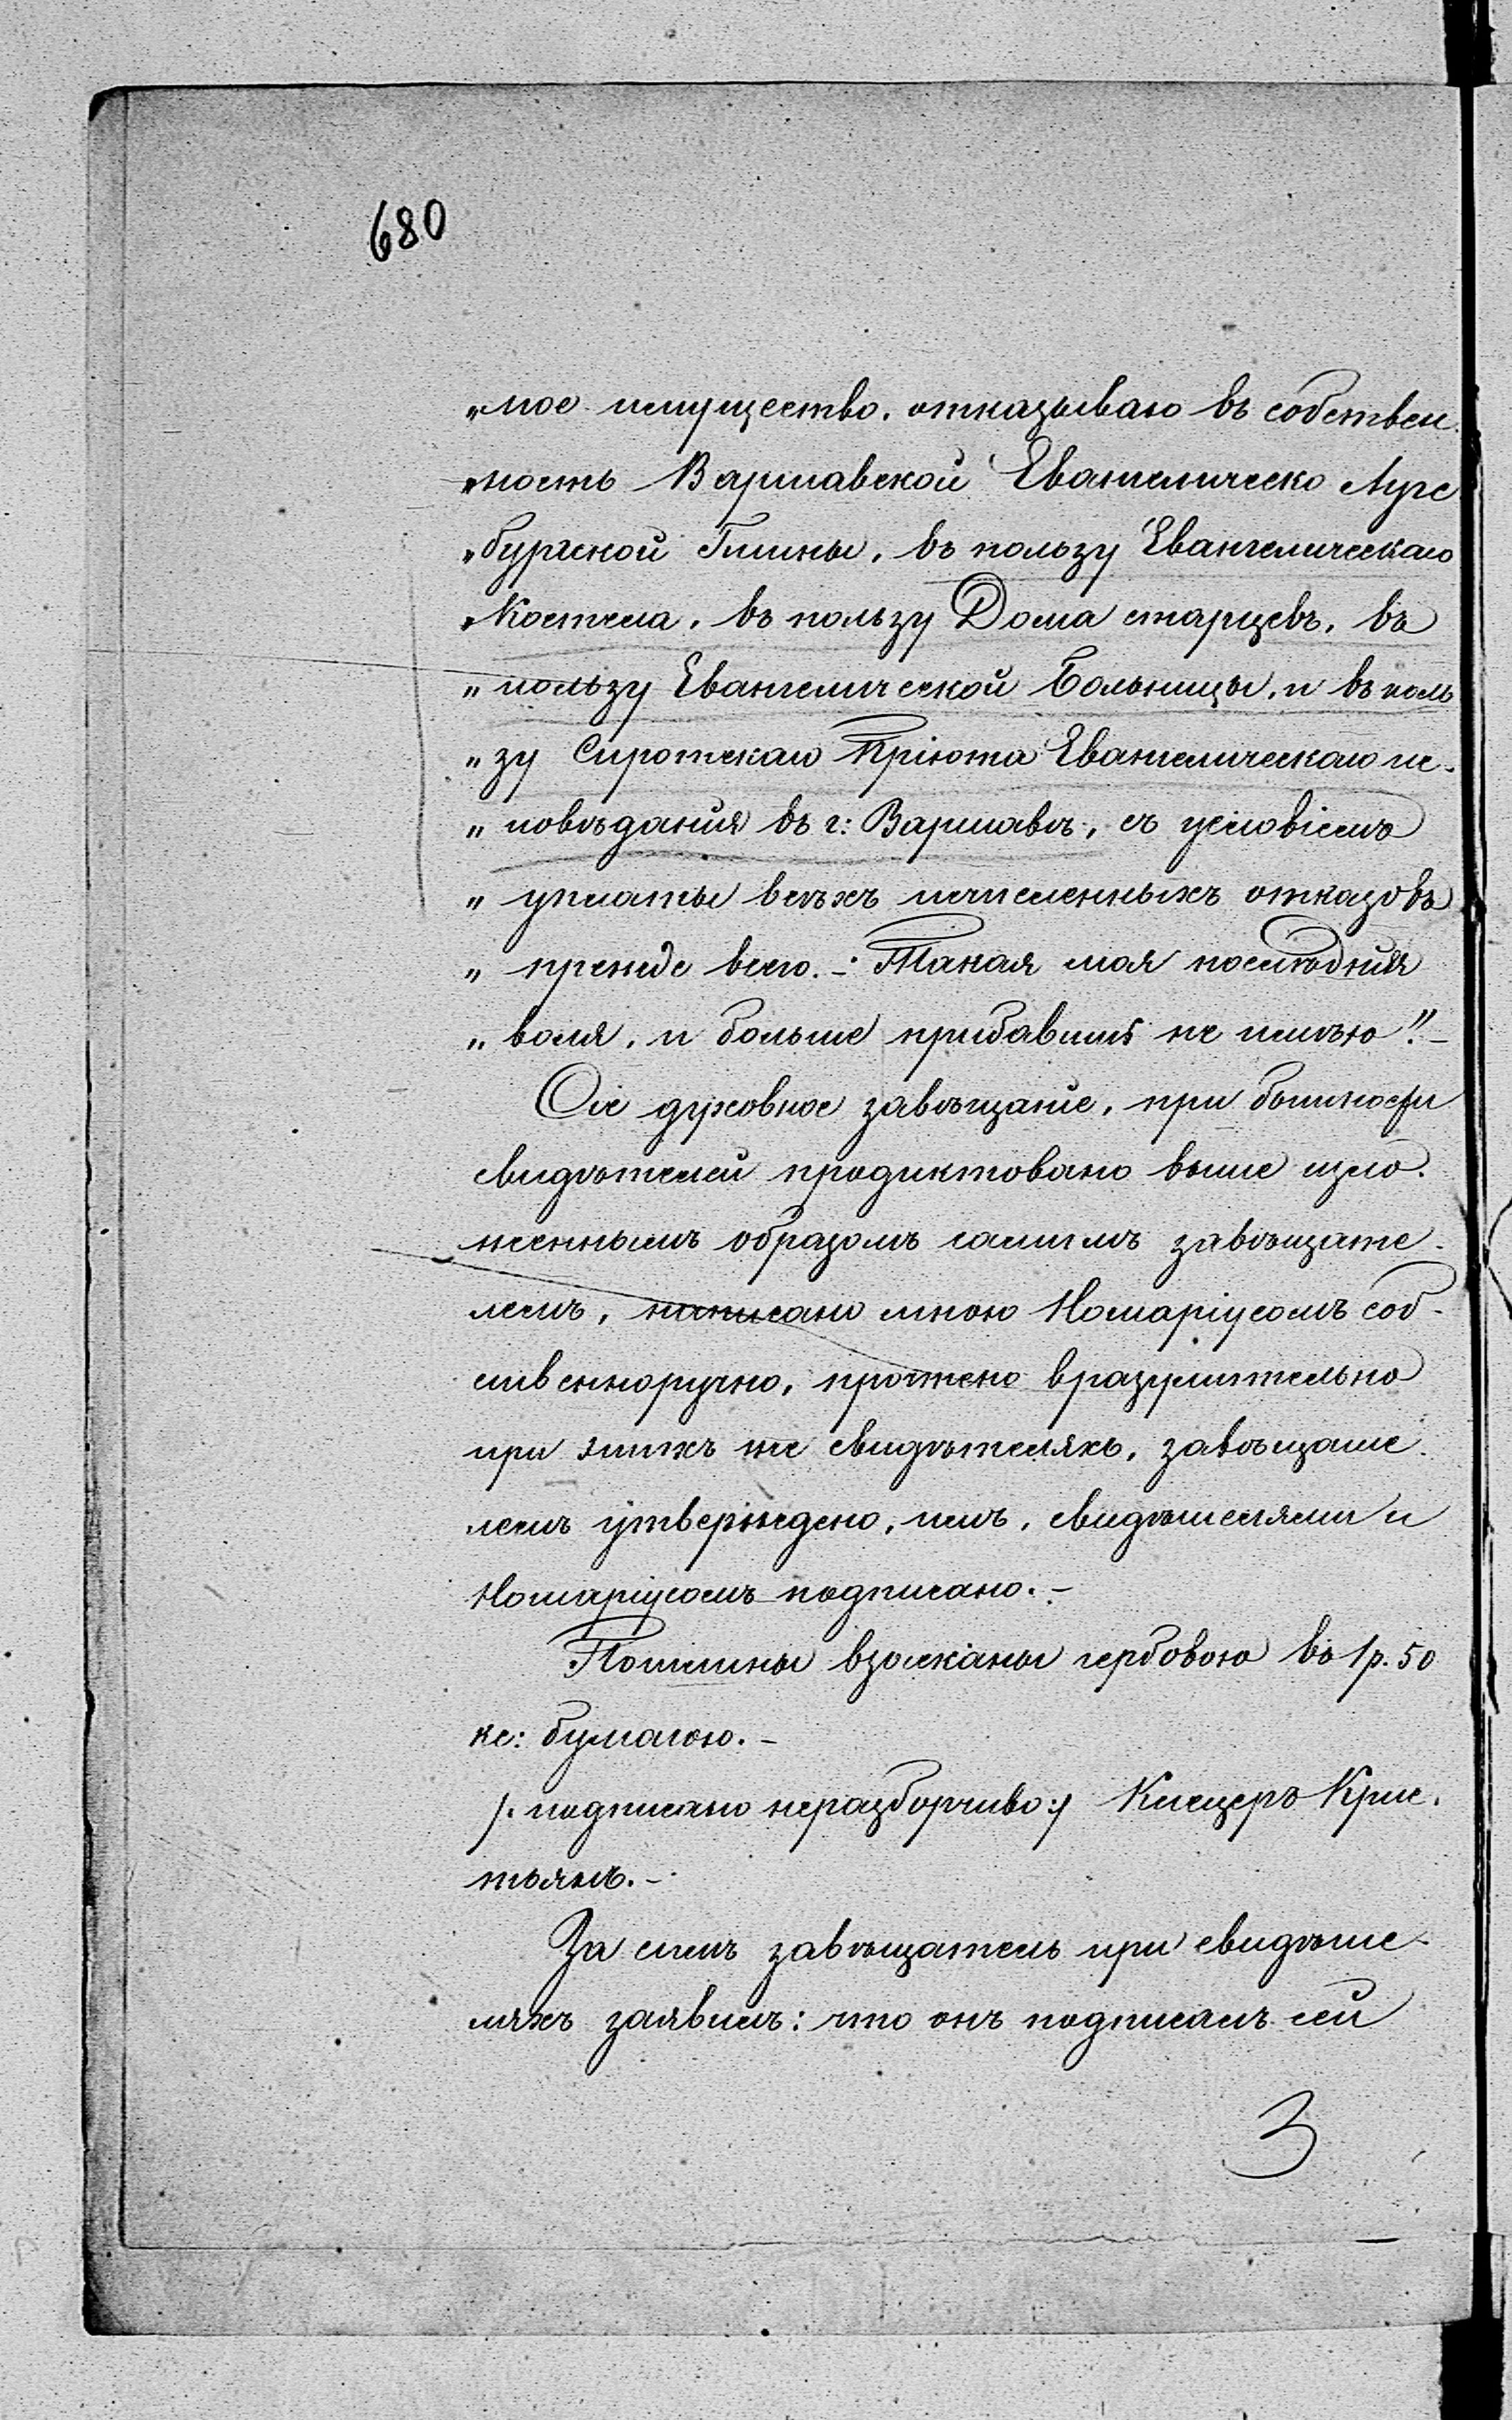 680
„мое имущество, отказываю въ собствен-
„ность Варшавской Евангелическо Аугс
„бургской Гмины, въ пользу Евангелическаго
„Костела, въ пользу Дома старцевъ, въ
„пользу Евангелической Больницы, и въ поль
„зу Сиротскаго Пріюта Евангелическаго ис-
„повѣданія въ г: Варшавѣ, съ условіемъ
„уплаты всѣхъ исчисленныхъ отказовъ
„прежде всего.- Такая моя послѣдняя
„воля, и больше прибавить не имѣю".-
Сіе духовное завѣщаніе, при бытности
свидѣтелей продиктовано выше изло-
женнымъ образомъ самимъ завѣщате-
лемъ, написано мною Нотаріусомъ соб-
ственноручно, прочтено вразумительно
при этихъ же свидѣтеляхъ, завѣщате-
лемъ утверждено, имъ, свидѣтелями и
Нотаріусомъ подписано.-
Пошлины взысканы гербовою въ 1 р. 50
кс: бумагою.-
/: подписано неразборчиво:/ Кнецеръ Крис-
тьянъ.-
За симъ завѣщатель при свидѣте-
ляхъ заявилъ: что онъ подписалъ сей
3